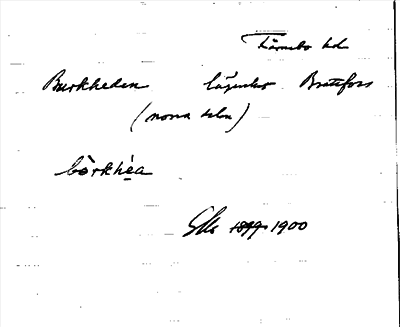 Färnebo hd
Burkheden lägenhet Brattfors
(norra delen)
bòrkhèa
1899-1900